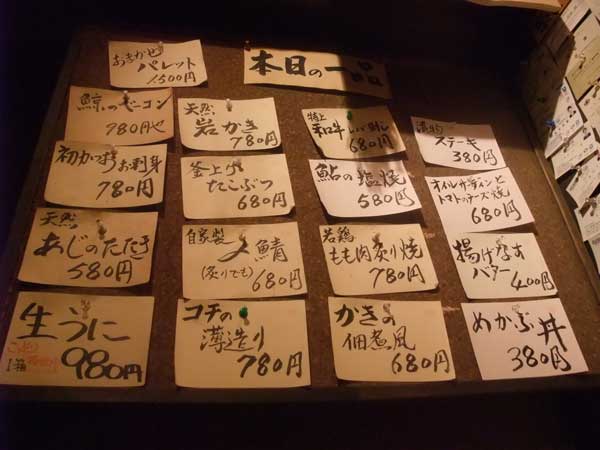 本日の一品
おまかせ
パレット
1,500円
鯨のベーコン
780円也
初かつおお刺身
780円
天然
あじのたたき
580円
生うに
1箱
980円
天然
岩かき
780円
釜上げ
たこぶつ
680円
自家製
〆鯖
(炙りでも)
680円
コチの
薄造り
780円
特上
和牛
680円
鮎の塩焼
580円
若鶏
もも肉炙り焼
780円
かきの
佃煮風
680円
漬物
ステーキ
380円
オイルサーディンと
トマトのチーズ焼
680円
揚げなす
バター
400円
めかぶ丼
380円